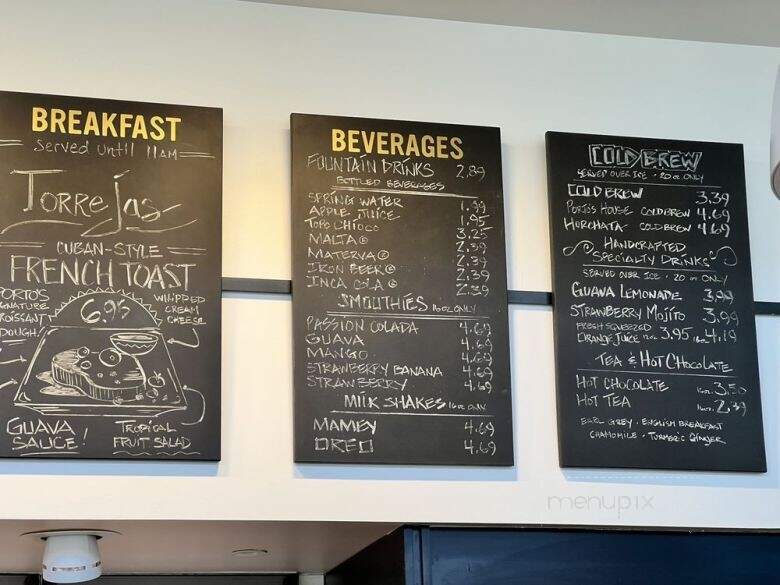 BREAKFAST
Served until 11AM
Torrejas
CUBAN-STYLE
FRENCH TOAST
PORTO'S
SIGNATURE
CROISSANT
DOUGH!
6.95
WHIPPED
CREAM
CHEESE
GUAVA
SAUCE!
TROPICAL
FRUIT SALAD
BEVERAGES
FOUNTAIN DRINKS 2.89
BOTTLED BEVERAGES
SPRING WATER 1.99
APPLE JUICE 1.95
TOPO CHICO 3.25
MALTA 2.39
MATERVA 2.39
IRON BEER 2.39
INCA COLA 2.39
SMOOTHIES 16oz ONLY
PASSION COLADA 4.69
GUAVA 4.69
MANGO 4.69
STRAWBERRY BANANA 4.69
STRAWBERRY 4.69
MILK SHAKES 16oz ONLY
MAMEY 4.69
OREO 4.69
COLD BREW
SERVED OVER ICE • 20 oz ONLY
COLD BREW 3.39
PORTO'S HOUSE COLDBREW 4.69
HORCHATA COLDBREW 4.69
HANDCRAFTED
SPECIALTY DRINKS
SERVED OVER ICE • 20 oz ONLY
GUAVA LEMONADE 3.99
STRAWBERRY MOJITO 3.99
FRESH SQUEEZED
ORANGE JUICE 12oz 3.95 16oz 4.19
TEA & HOT CHOCOLATE
HOT CHOCOLATE 16oz. 3.50
HOT TEA 2.39
EARL GREY • ENGLISH BREAKFAST
CHAMOMILE • TURMERIC GINGER
menupix